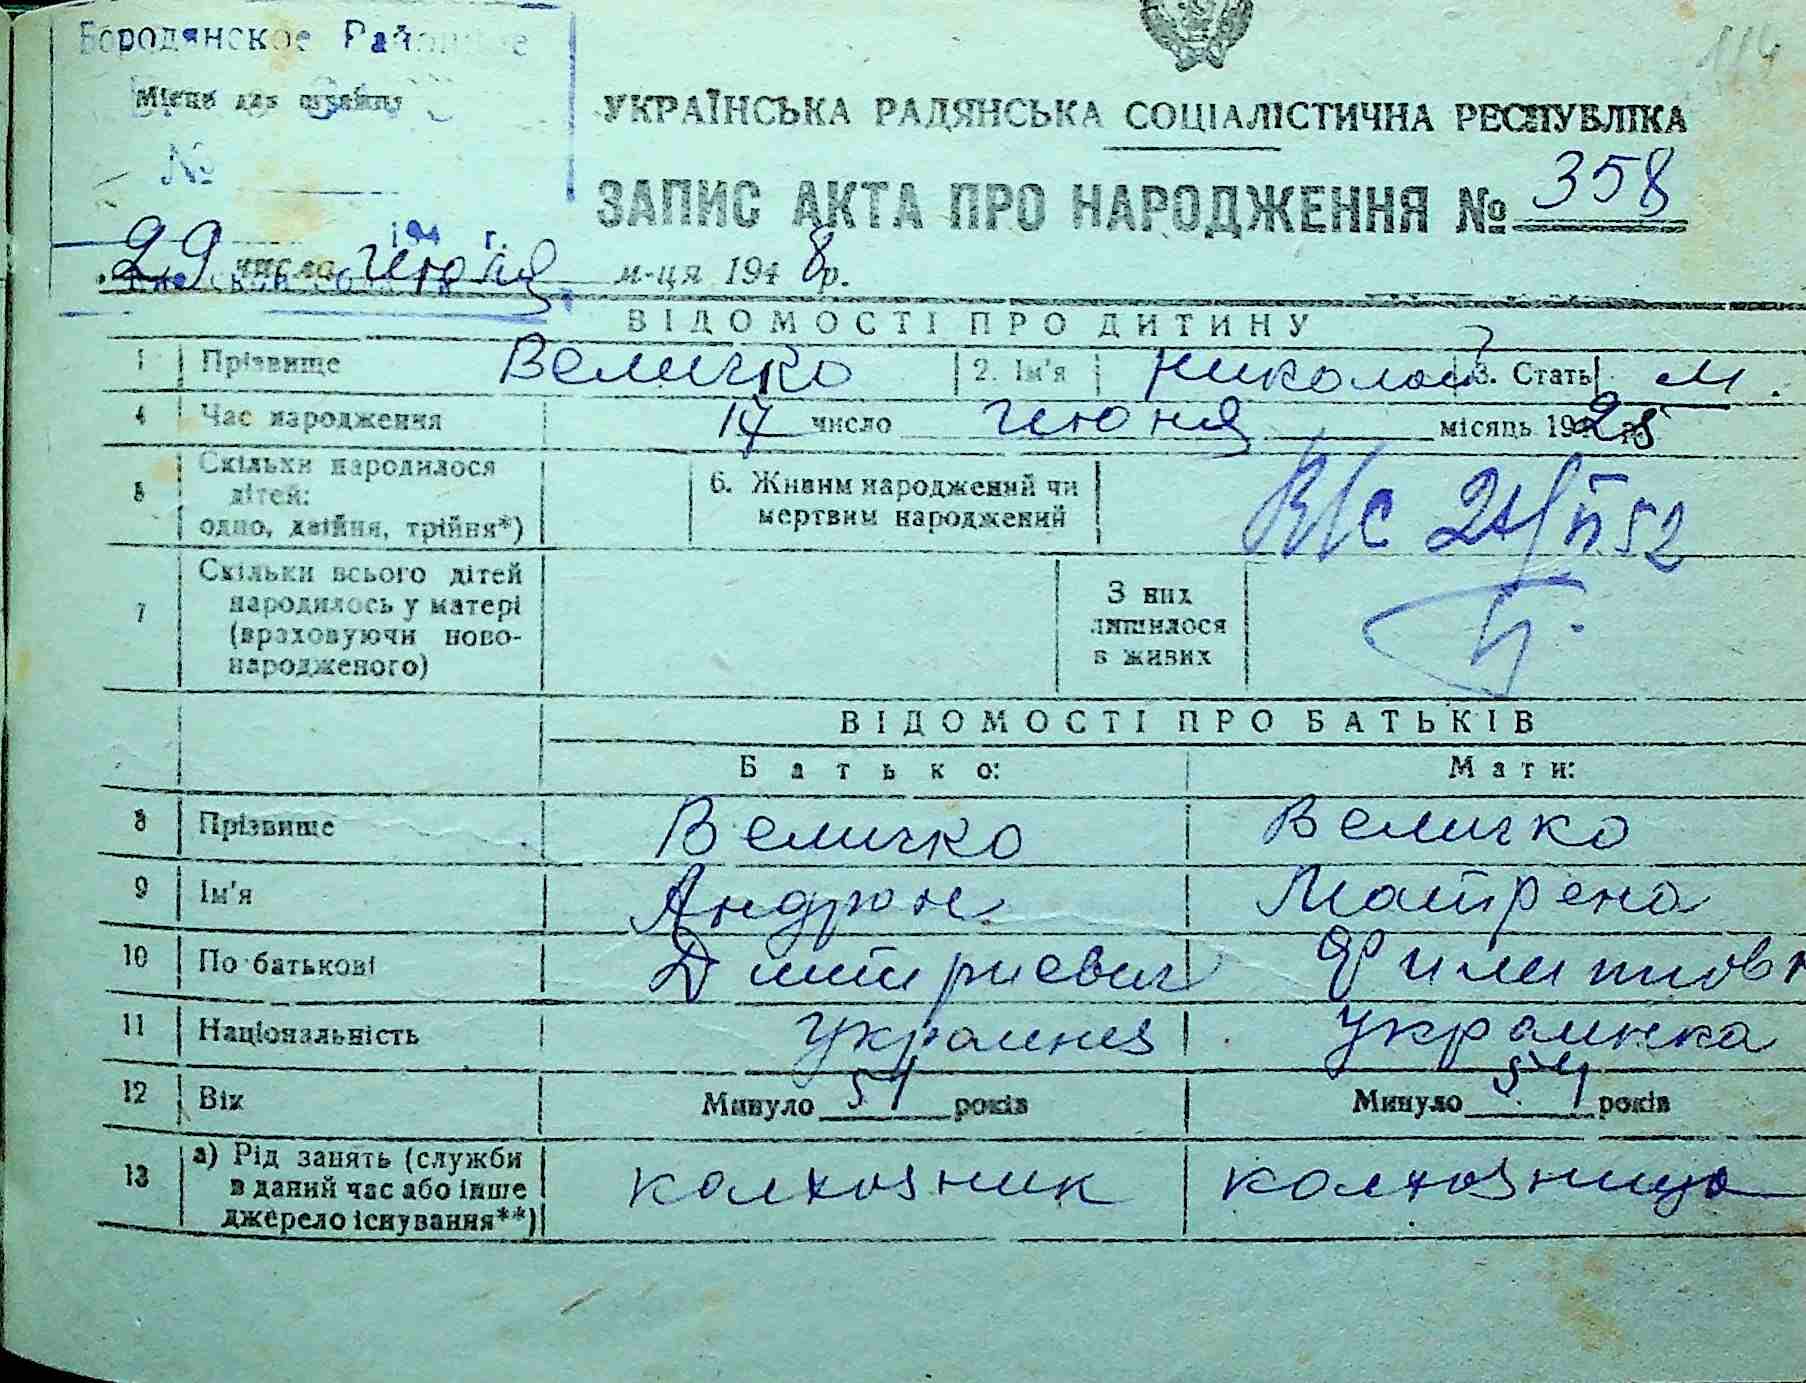 Бородянское Районное
Місце для штампу
114
№
УКРАЇНСЬКА РАДЯНСЬКА СОЦІАЛІСТИЧНА РЕСПУБЛІКА
ЗАПИС АКТА ПРО НАРОДЖЕННЯ № 358
194 г.
29 число июля м-ця 1948 р.
ВІДОМОСТІ ПРО ДИТИНУ
1 Прізвище Величко 2. Ім'я Николай 3. Стать м.
4 Час народження 17 число июня місяць 1925 р.
5 Скільки народилося дітей: одно, двійня, трійня*) 6. Живим народжений чи мертвим народжений
В/С 52
7 Скільки всього дітей народилось у матері (враховуючи новонародженого) З них лишилося в живих
ВІДОМОСТІ ПРО БАТЬКІВ
Батько: Мати:
8 Прізвище Величко Величко
9 Ім'я Андрон Матрена
10 По батькові Дмитриевич Филиповн
11 Національність Украинец Украинка
12 Вік Минуло 51 років Минуло 54 років
13 а) Рід занять (служби в даний час або інше джерело існування**) колхозник колхозница